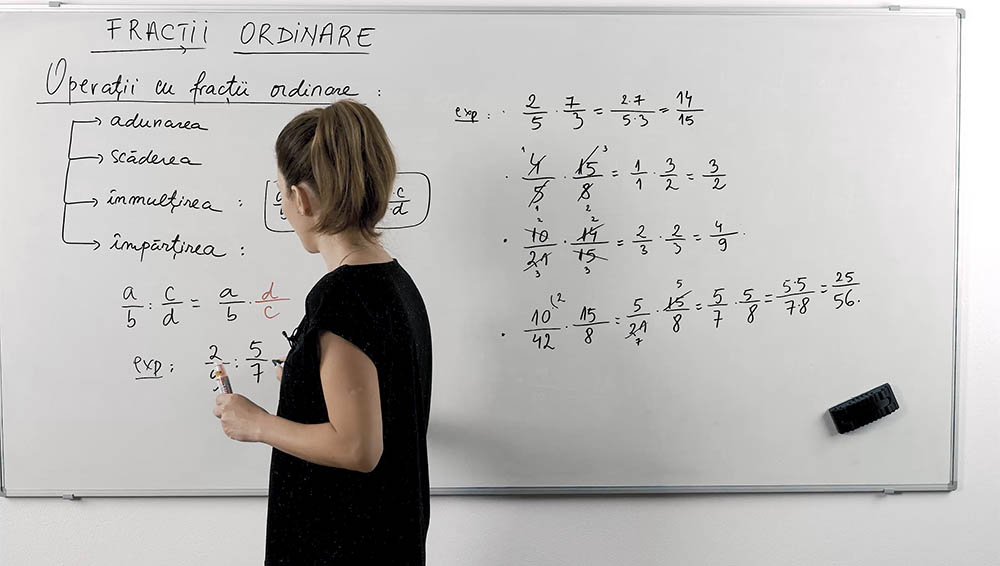 FRACȚII ORDINARE
Operații cu fracții ordinare :
adunarea
scăderea
înmulțirea :
c/d
împărțirea :
a/b : c/d = a/b · d/c
exp : 2/ : 5/7
exp : · 2/5 · 7/3 = 2·7/5·3 = 14/15
· 4/5 · 15/8 = 1/1 · 3/2 = 3/2
· 10/21 · 14/15 = 2/3 · 2/3 = 4/9 .
· 10/42 (2 · 15/8 = 5/21 · 15/8 = 5/7 · 5/8 = 5·5/7·8 = 25/56 .